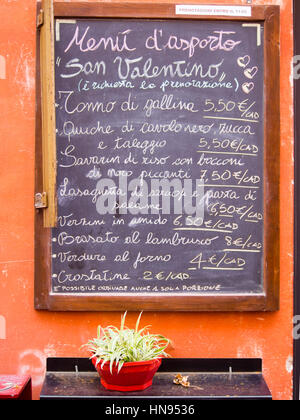 PRENOTAZIONI ENTRO IL 11/02
Menú d'asporto
"San Valentino"
(è richiesta la prenotazione)
Tonno di gallina 5,50 €/CAD
Quiche di cavolo nero, zucca
e taleggio 5,50 €/CAD
Savarin di riso con bocconi
di mro piccanti 7,50 €/CAD
Lasaghetta di carciofi e pasta di
salame 6,50 €/CAD
Verzini in umido 6,50 €/CAD
Brasato al lambrusco 8€/CAD
Verdure al forno 4€/CAD
Crostatine 2€/CAD
È POSSIBILE ORDINARE ANCHE 1 SOLA PORZIONE
alamy
Image ID: HN9536
www.alamy.com